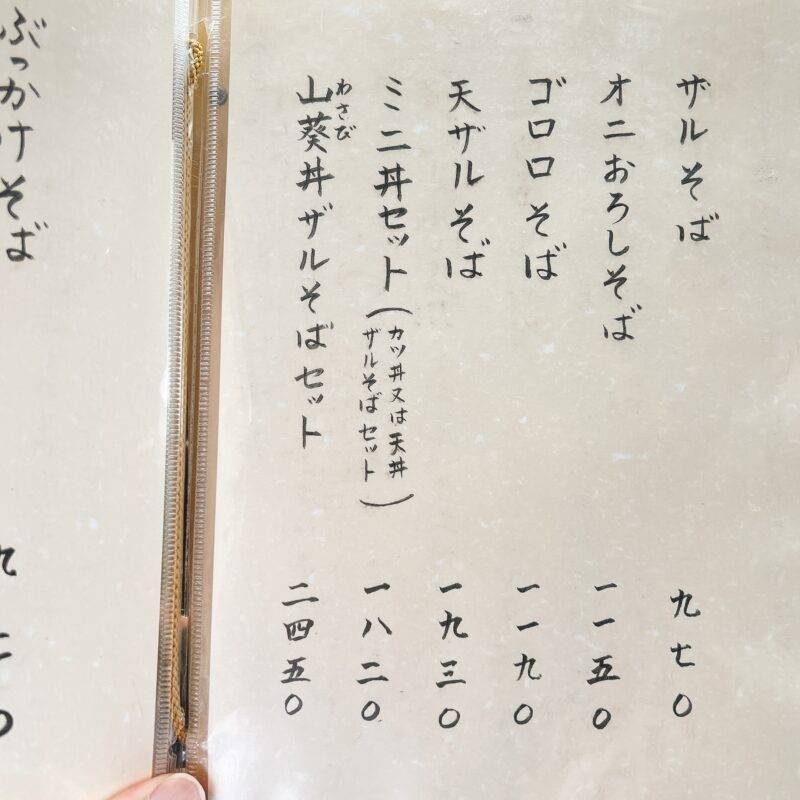 ザルそば 九七〇
オニおろしそば 一一五〇
ゴロロそば 一一九〇
天ザルそば 一九三〇
ミニ丼セット(カツ丼又は天丼 ザルそばセット) 一八二〇
わさび
山葵丼ザルそばセット 二四五〇
ぶっかけそば 九二〇